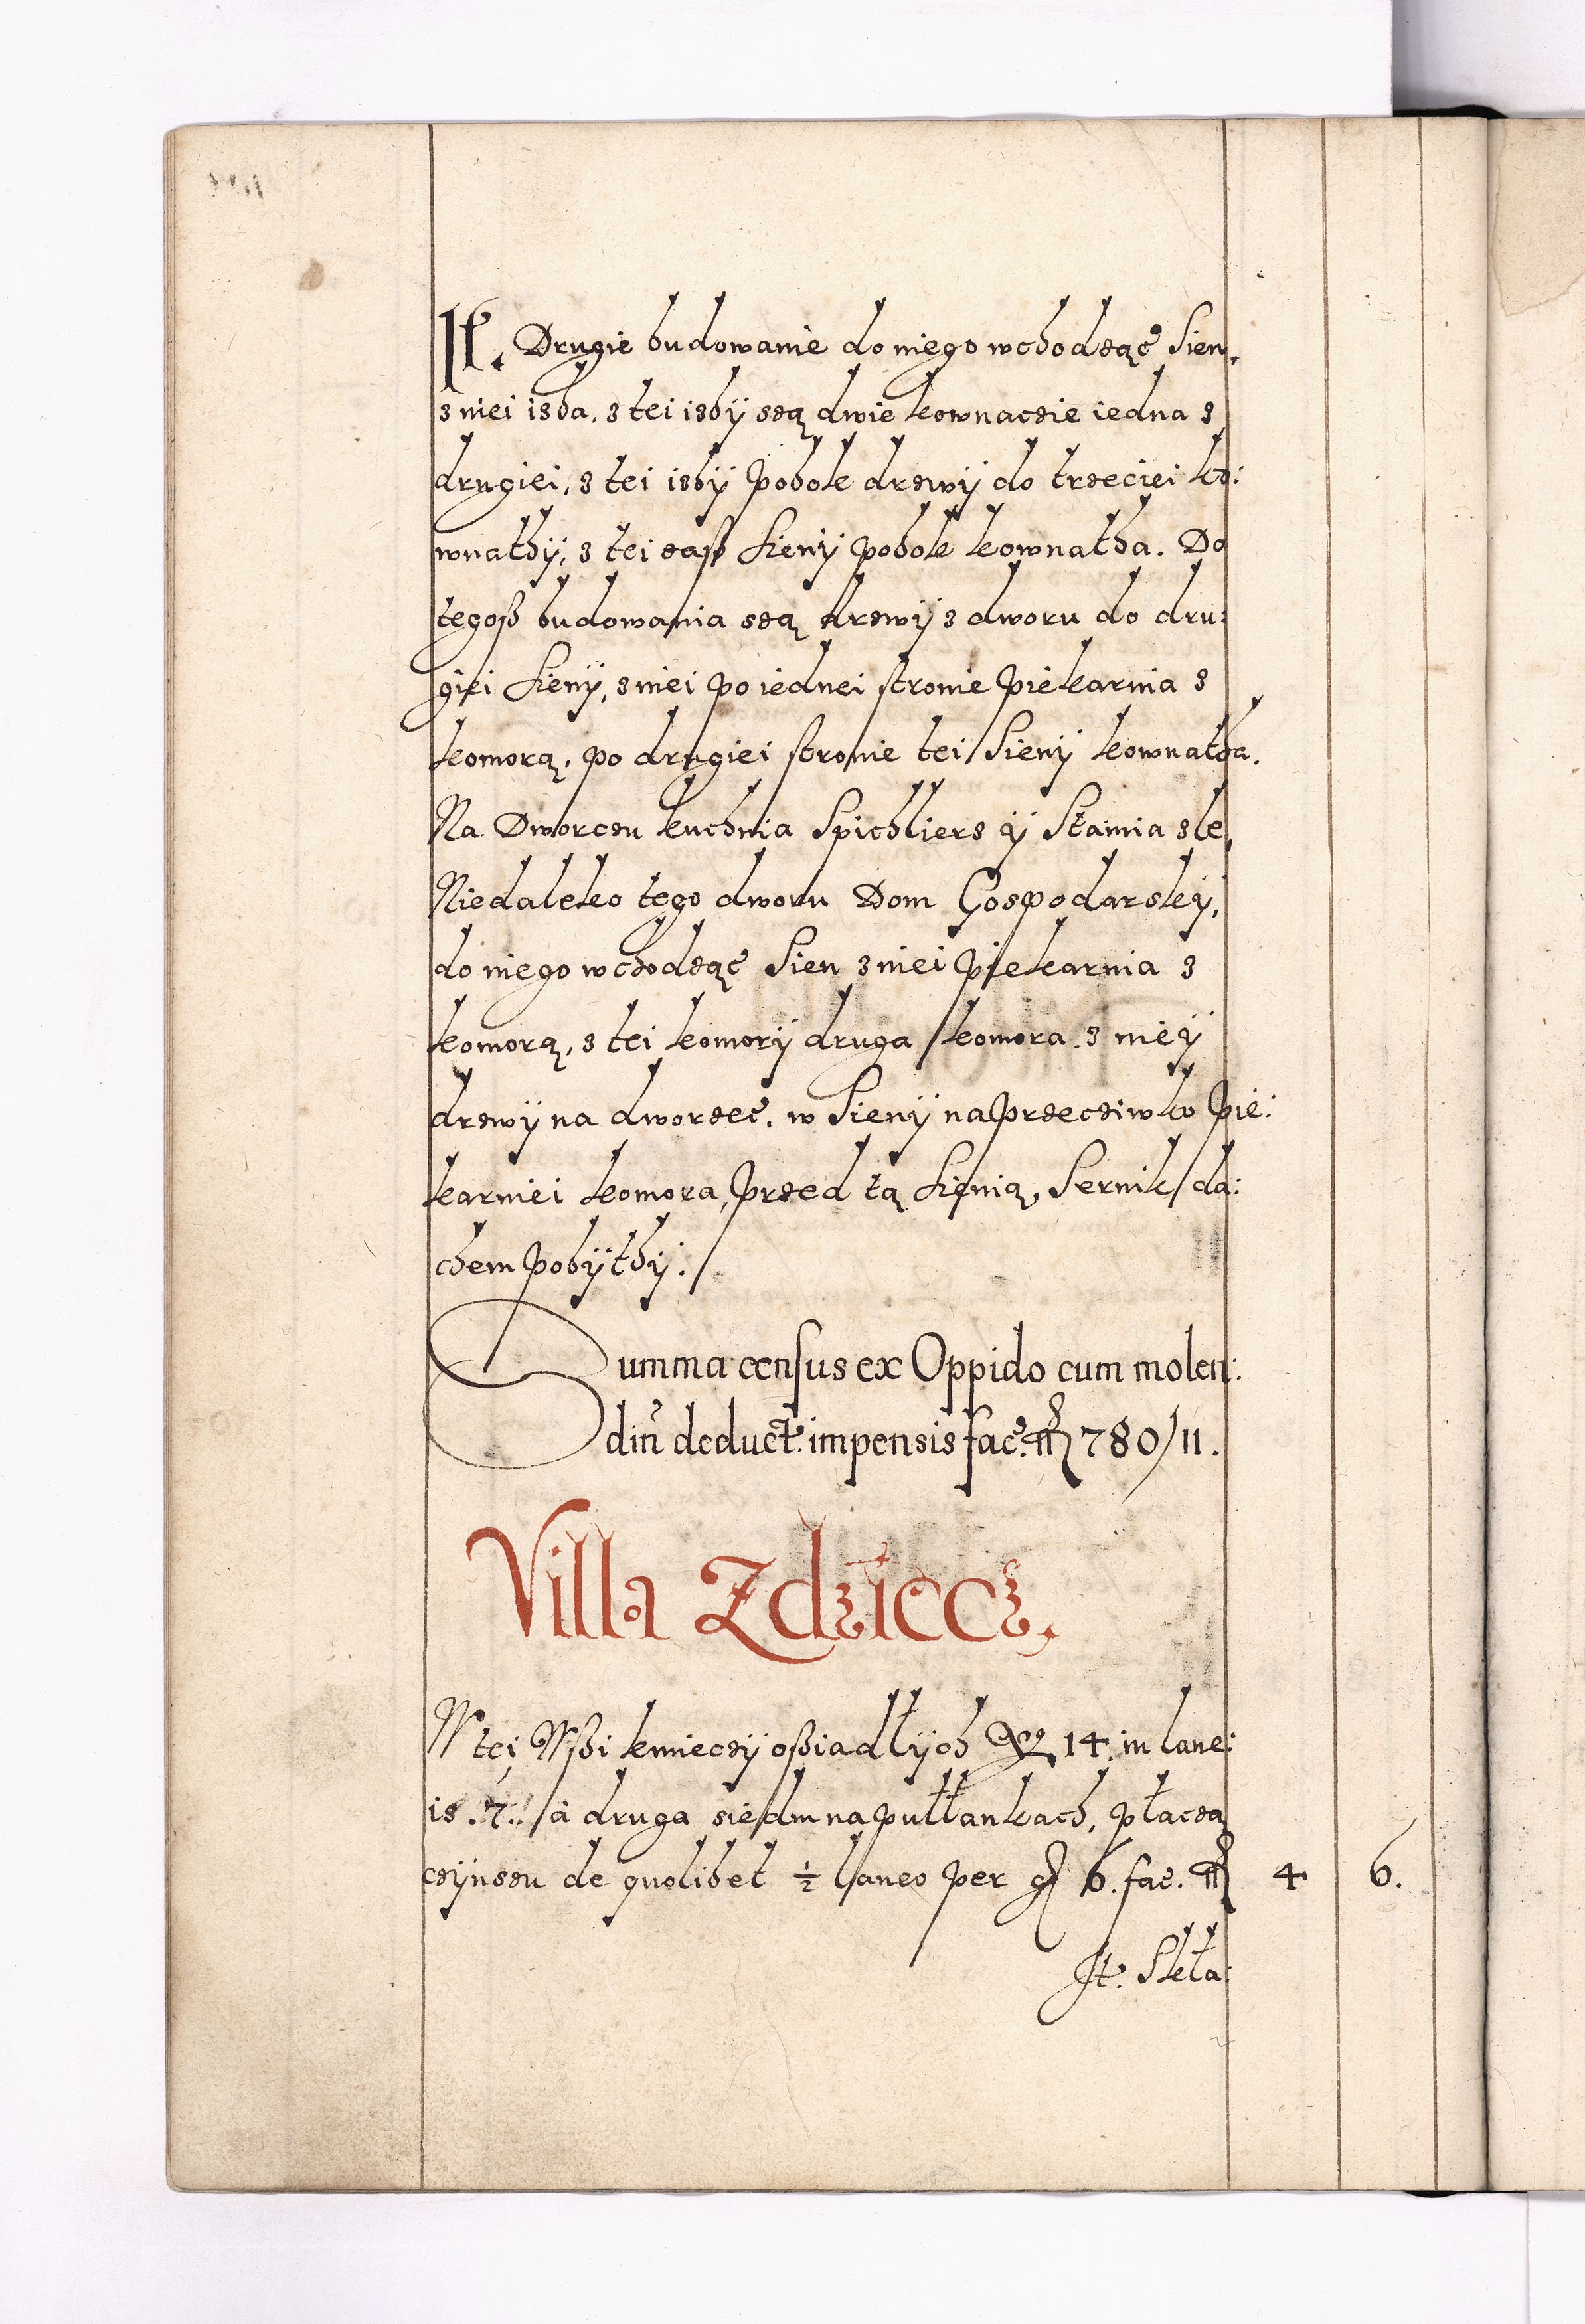 It. Drugie budowanie do niego wchodząc Sien,
z niei izba, z tei izbÿ sszą dwie kownaczie iedna z
drugiei, z tei izbÿ pobok drzwÿ do trzeciei ko:
wnathÿ, z tei zaß Sienÿ pobok kownatha. Do
tegoß budowania szą drzwÿ z dworu do dru:
giei Sienÿ, z niei po iednei stronie piekarnia z
komorą, po drugiei stronie tei Sienÿ kownatha.
Na Dworczu kuchnia Spichlierz ÿ Stainia zle,
Niedaleko tego dworu Dom Gospodarskÿ,
do niego wchodząc Sien z niei piekarnia z
komorą, z tei komorÿ druga komora. z nieÿ
drzwÿ na dworzec. w Sienÿ naprzecziwko pie:
karniei komora, przed tą Sienią, Sernik da:
chem pobÿthÿ:
Summa census ex Oppido cum molen:
din deduct. impensis fac. 780/11.
Villa Zdzicez.
W tei Wßi kmieczÿ oßiadłÿch 14. in lane:
is .7. à druga siedm na pułłankach, płaczą
czÿnszu de quolibet ½ laneo per g 6. fac. 4 6.
It. Skła: